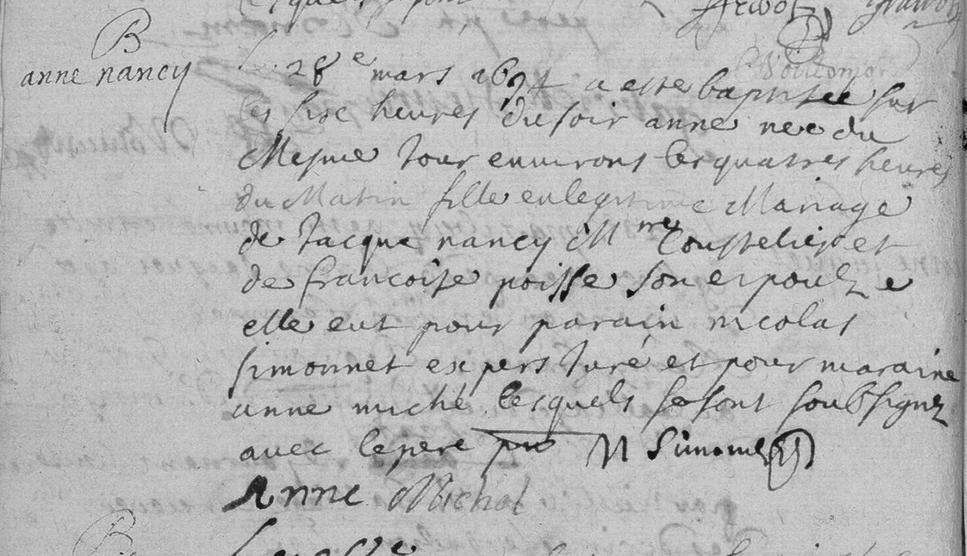 B
anne nancy
28e mars 1694 a este baptisee sur
les sixe heures du soir anne nee du
Mesme Jour environs les quatres heures
du Matin fille en legitime Mariage
de Jacque nancy Mre Coustelier et
de francoise poisse son espouse
elle eut pour parain nicolas
simonnet expers Juré et pour maraine
anne miché lesquels se sont soubsignez
avec le pere N Simonet
Anne Michel
B